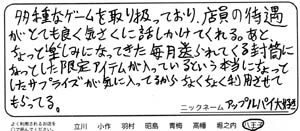 多種なゲームを取り扱っており、店員の待遇
がとても良く気さくに話しかけてくれる。あと、
ちょっと楽しみになってきた毎月送られてくる封筒に
ちょっとした限定アイテムが入っているという本当にちょっと
したサプライズが気に入ってるからちょくちょく利用させて
もらってる。
ニックネーム アップルパイ大好き
よく利用されるお店
に○で囲んでください。
立川 小作 羽村 昭島 青梅 高幡 堀之内 八王子